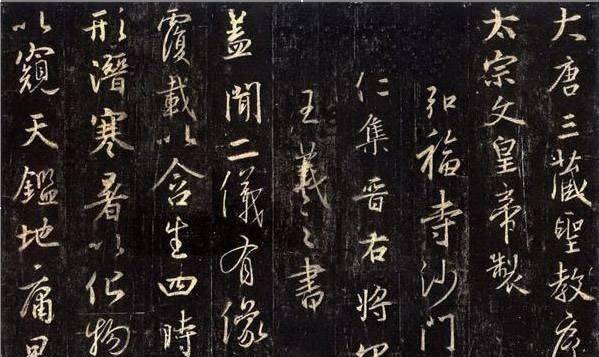 大唐三藏聖教序
太宗文皇帝製
弘福寺沙門
仁集晉右將軍
王羲之書
蓋聞二儀有像
覆載以含生四時
形潛寒暑以化物
以窺天鑑地庸愚